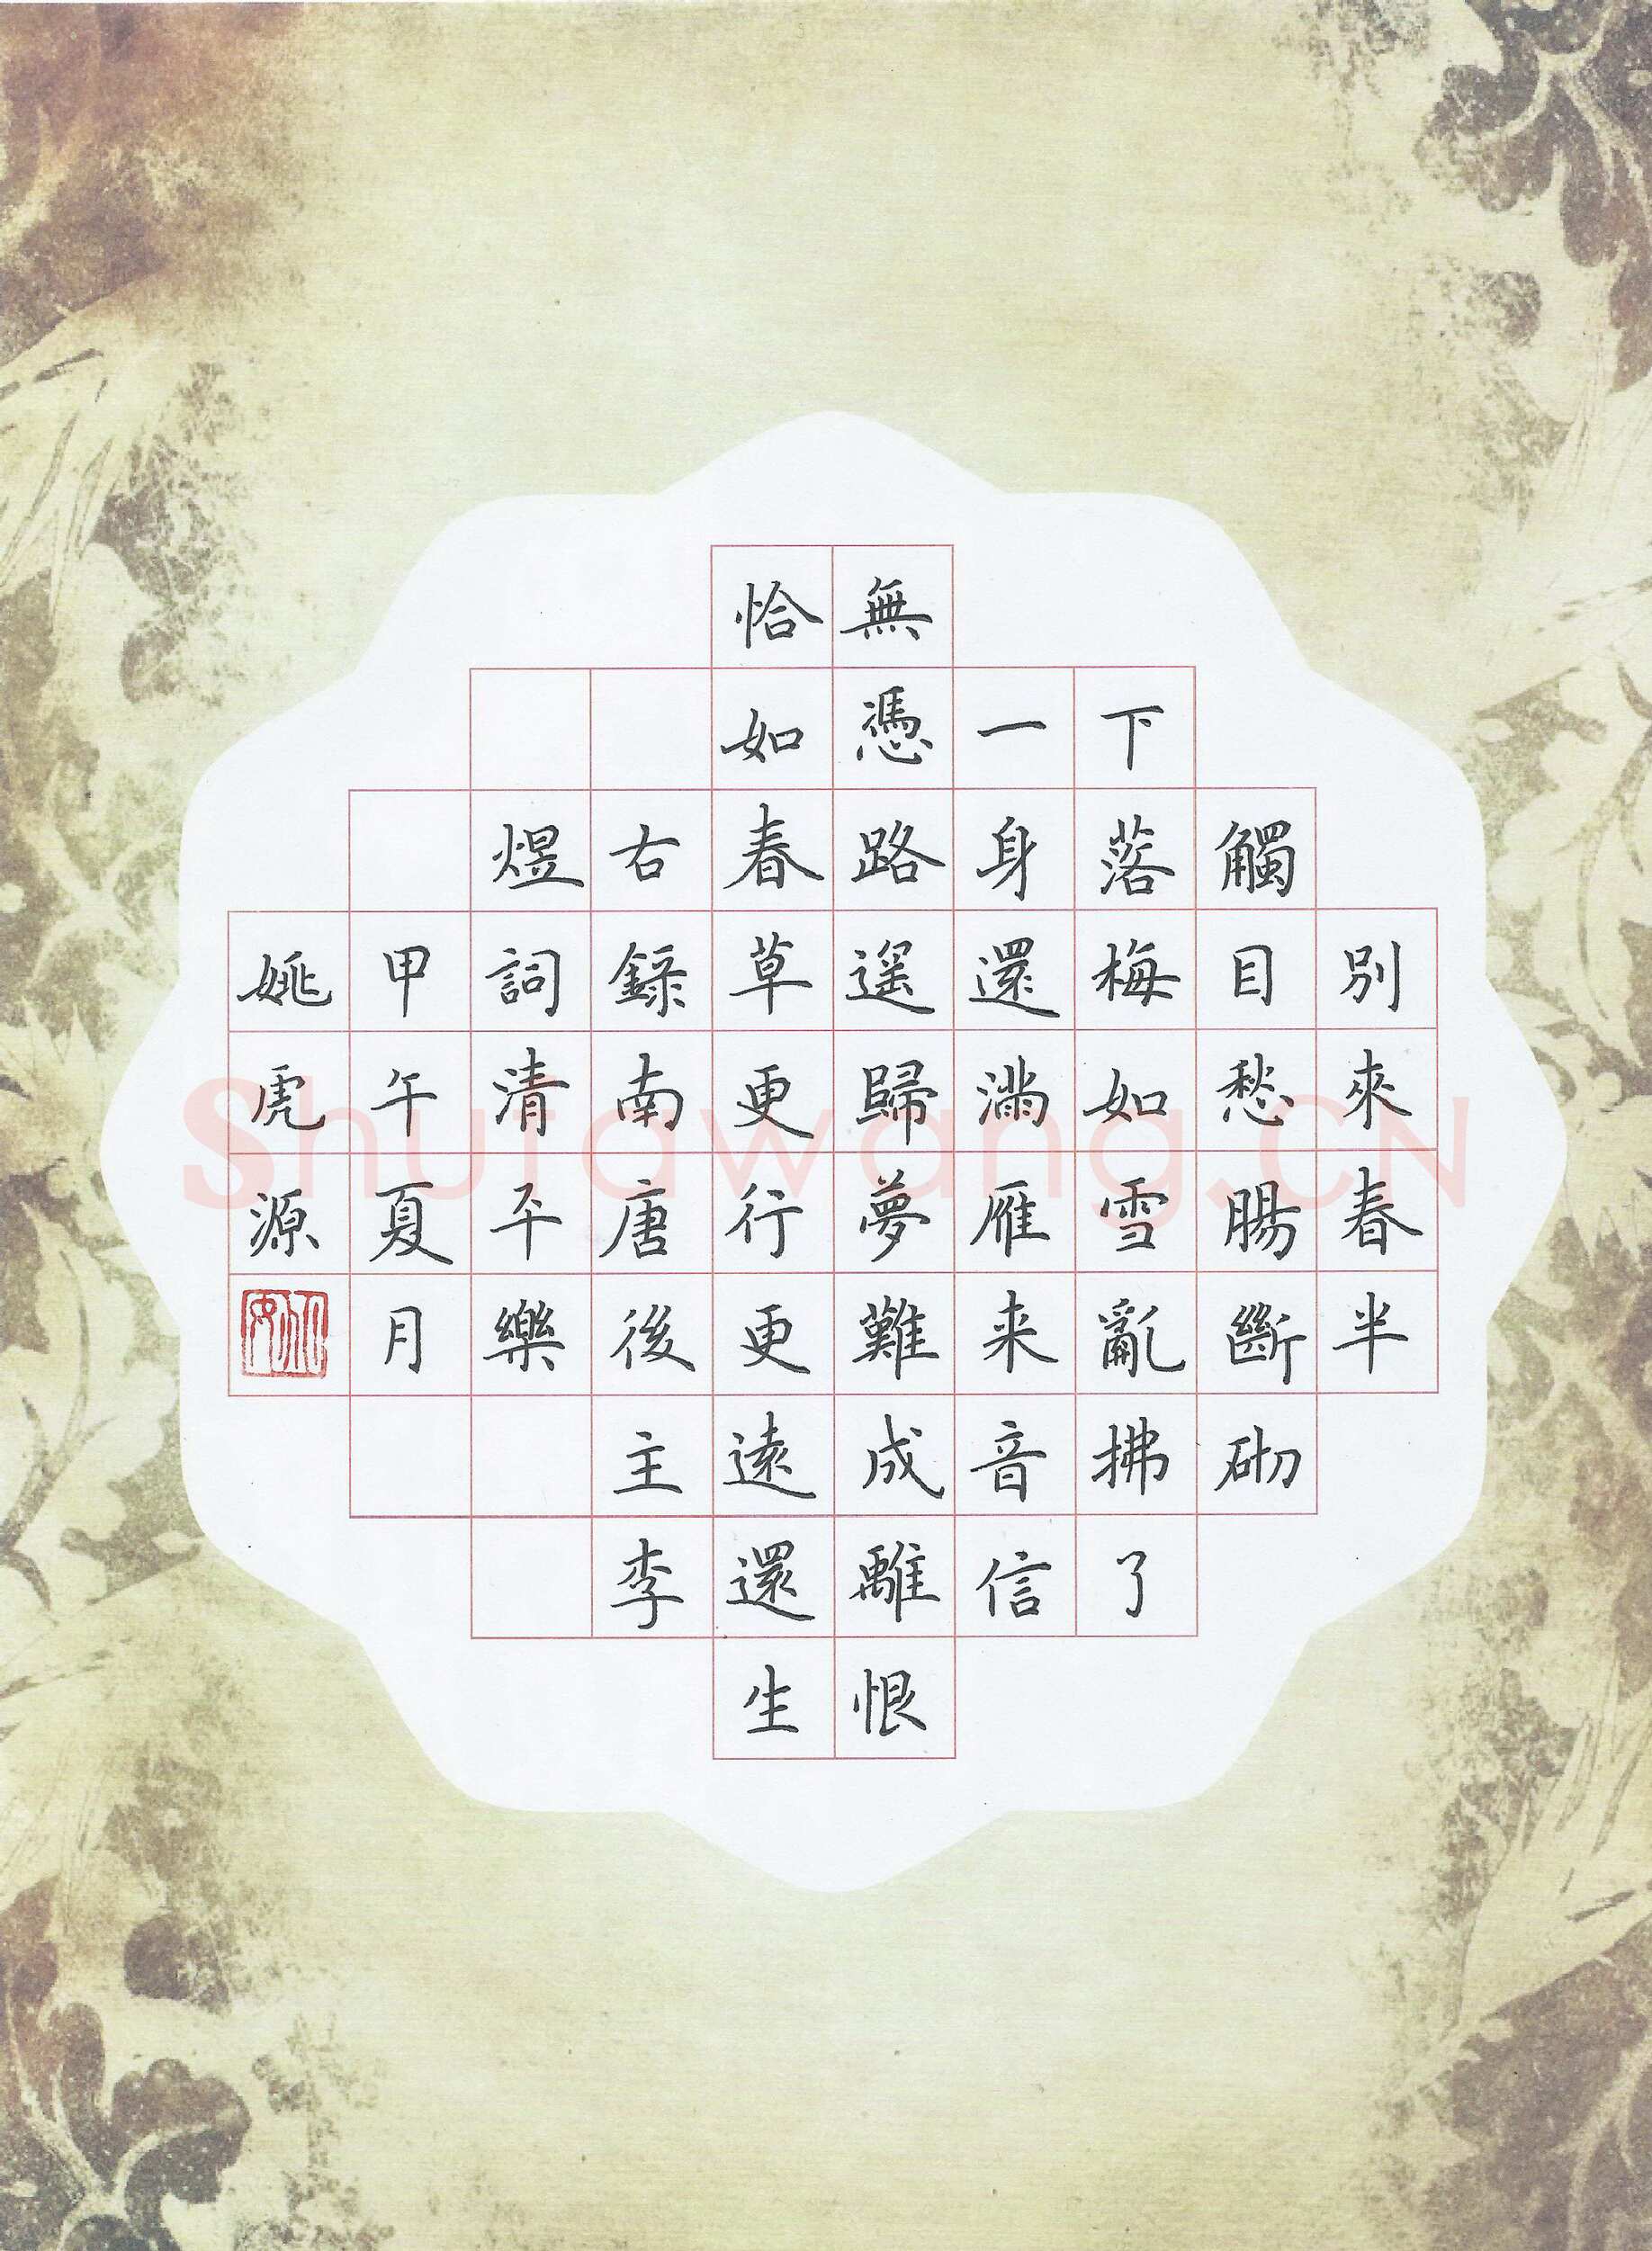 別來春半
觸目愁腸斷砌
下落梅如雪亂拂了
一身還滿雁来音信
無憑路遥歸夢難成離恨
恰如春草更行更遠還生
右錄南唐後主李
煜詞清平樂
甲午夏月
姚虎源
Shufawang.CN